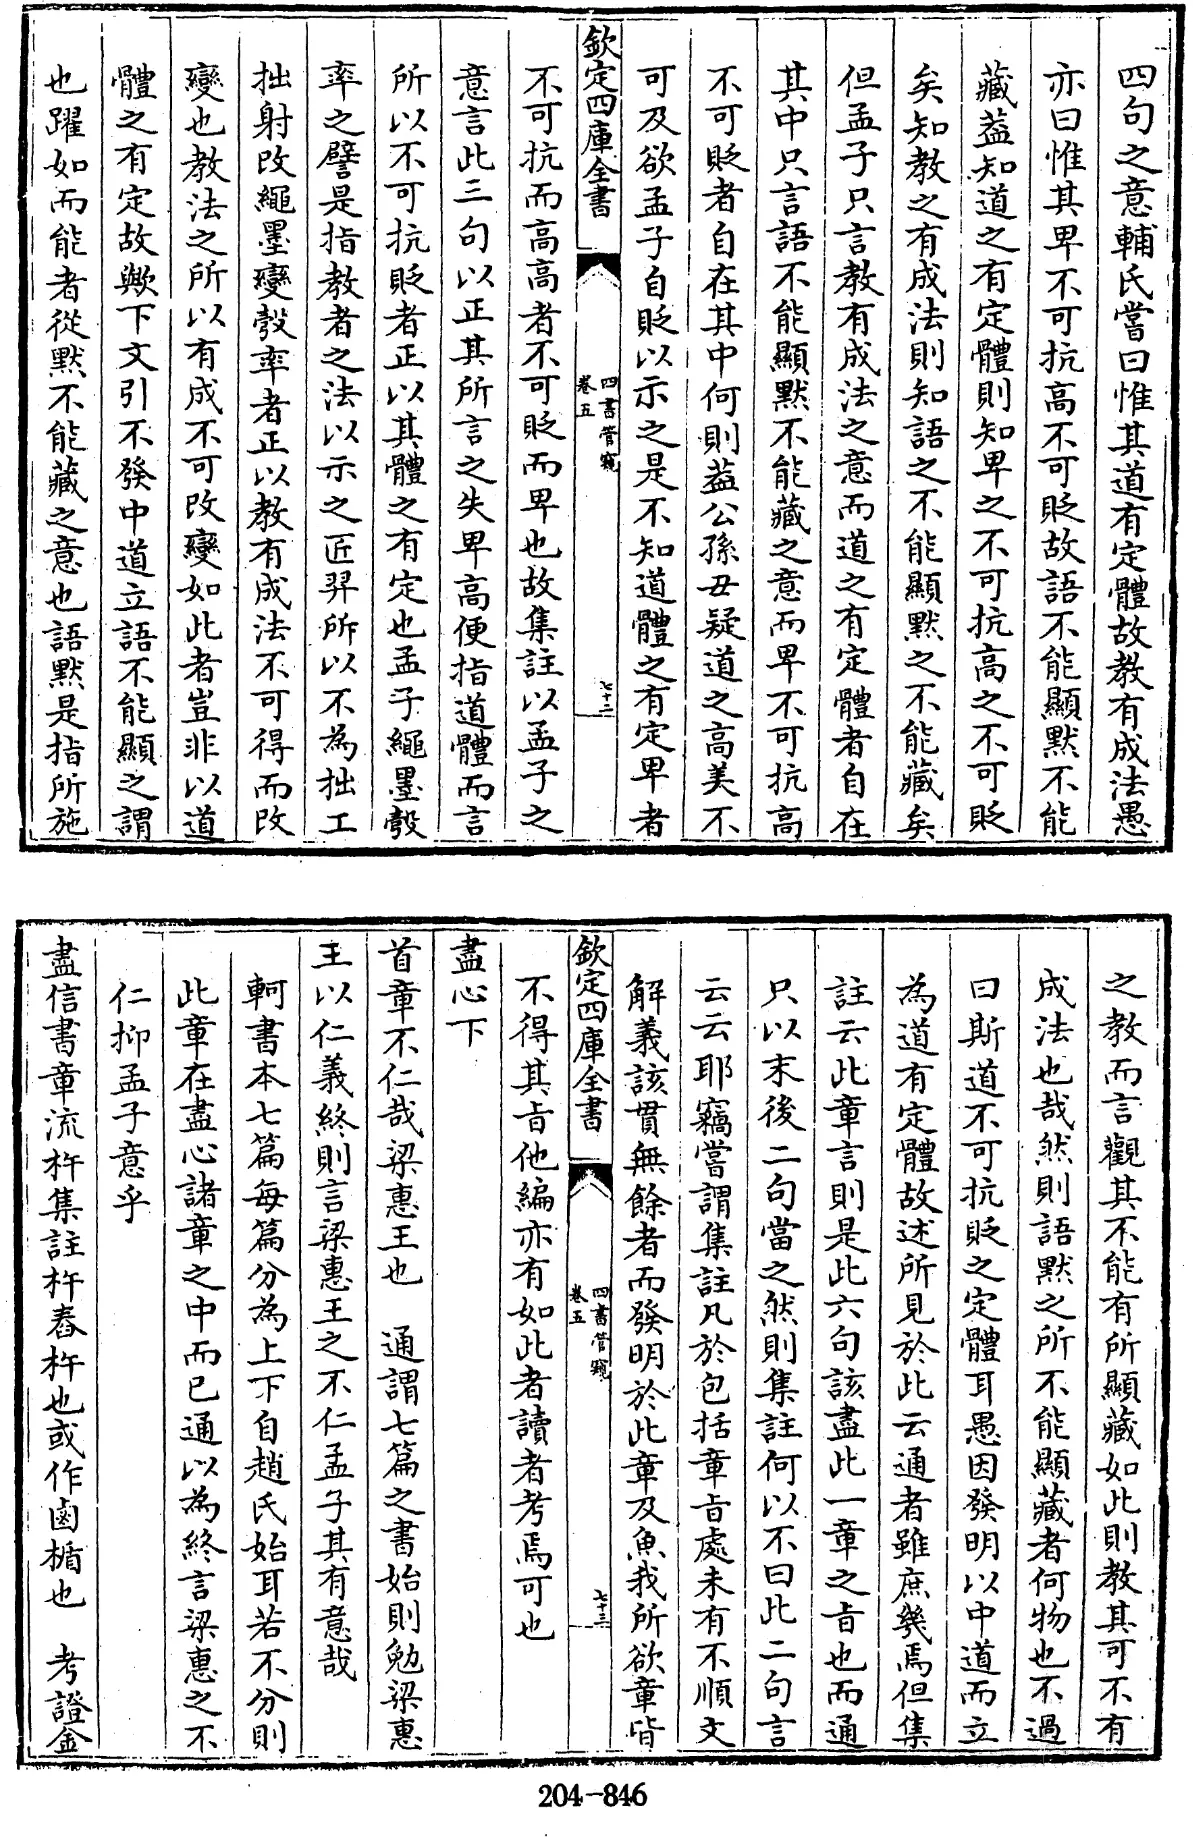 四句之意輔氏嘗曰惟其道有定體故教有成法愚
亦曰惟其卑不可抗高不可貶故語不能顯默不能
藏葢知道之有定體則知卑之不可抗高之不可貶
矣知教之有成法則知語之不能顯默之不能藏矣
但孟子只言教有成法之意而道之有定體者自在
其中只言語不能顯默不能藏之意而卑不可抗高
不可貶者自在其中何則葢公孫丑疑道之高美不
可及欲孟子自貶以示之是不知道體之有定卑者
欽定四庫全書
四書管窺
卷五
七十二
不可抗而高高者不可貶而卑也故集註以孟子之
意言此三句以正其所言之失卑高便指道體而言
所以不可抗貶者正以其體之有定也孟子繩墨彀
率之譬是指教者之法以示之匠羿所以不為拙工
拙射改繩墨變彀率者正以教有成法不可得而改
變也教法之所以有成不可改變如此者豈非以道
體之有定故歟下文引不發中道立語不能顯之謂
也躍如而能者從默不能藏之意也語默是指所施
之教而言觀其不能有所顯藏如此則教其可不有
成法也哉然則語默之所不能顯藏者何物也不過
曰斯道不可抗貶之定體耳愚因發明以中道而立
為道有定體故述所見於此云通者雖庶幾焉但集
註云此章言則是此六句該盡此一章之㫖也而通
只以末後二句當之然則集註何以不曰此二句言
云云耶竊嘗謂集註凡於包括章㫖處未有不順文
解義該貫無餘者而發明於此章及魚我所欲章皆
欽定四庫全書
四書管窺
卷五
七十三
不得其㫖他編亦有如此者讀者考焉可也
盡心下
首章不仁哉梁惠王也　通謂七篇之書始則勉梁惠
王以仁義終則言梁惠王之不仁孟子其有意哉
軻書本七篇每篇分為上下自趙氏始耳若不分則
此章在盡心諸章之中而已通以為終言梁惠之不
仁抑孟子意乎
盡信書章流杵集註杵舂杵也或作鹵楯也　考證金
204-846